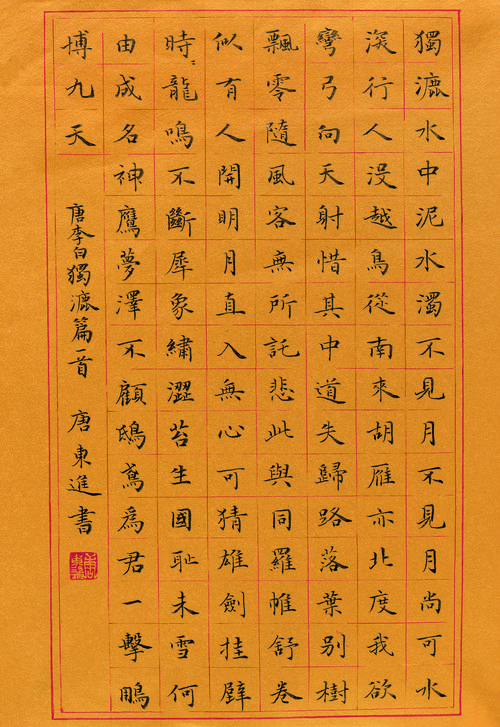 獨漉水中泥水濁不見月不見月尚可水
深行人没越鳥從南來胡雁亦北度我欲
彎弓向天射惜其中道失歸路落葉别樹
飄零隨風客無所託悲此與同羅帷舒卷
似有人開明月直入無心可猜雄劍挂壁
時〻龍鳴不斷犀象繡澀苔生國恥未雪何
由成名神鷹夢澤不顧鴟鳶爲君一擊鵬
博九天
唐李白獨漉篇一首 唐東進書